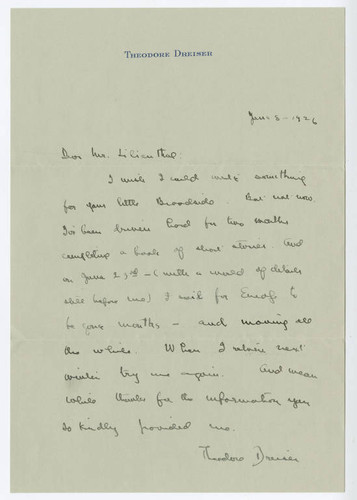 THEODORE DREISER
June 8 - 1926
Dear Mr. Lilienthal:
I wish I could write something
for your little Broadside. But not now.
I've been driven hard for two months
completing a book of short stories. And
on June 22nd - (with a world of details
still before me) I sail for Europe to
be gone months - and moving all
the while. When I return next
winter try me again. And mean
while thanks for the information you
so kindly provided me.
Theodore Dreiser